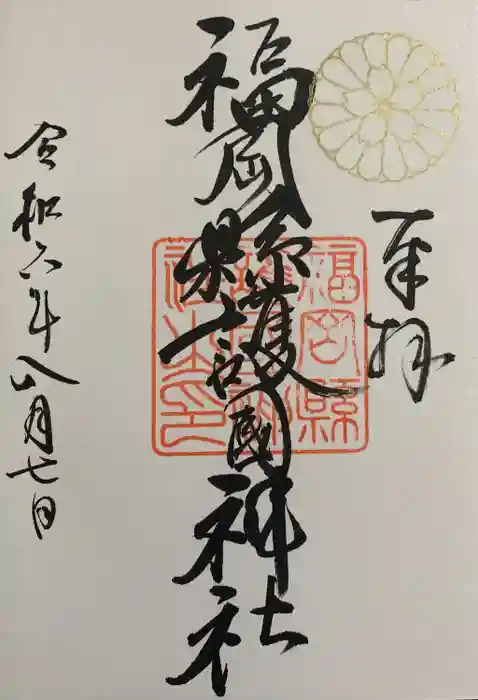 奉拝
福岡縣護國神社
福岡縣護國神社之印
令和六年八月七日